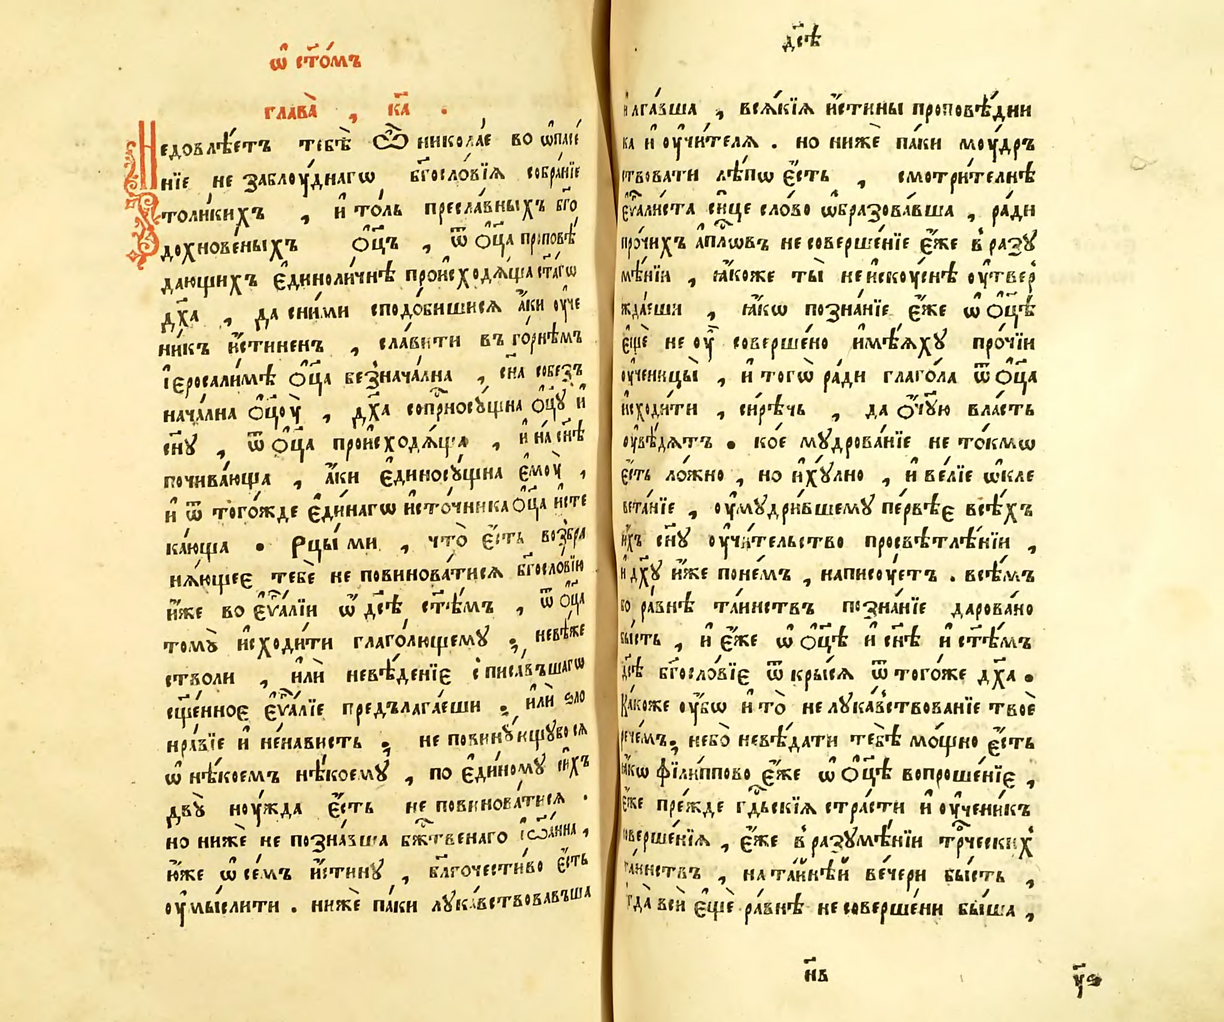 ѡ҆ ст҃о́мъ
глава̀ , к҃а .
Недовлѣ́етъ тебѣ̀ Ѽ никола́е во ѡ҆паса́
нїе не заблоу́днагѡ бг҃осло́вїѧ собра́нїе
толи́кихъ , и҆ то́ль пресла́вныхъ бг҃о
дохнове́ныхъ ѻ҆ц҃ъ , ѿ ѻ҆ц҃а проповѣ́
дающихъ є҆диноли́чнѣ происходѧ́ща ст҃а́гѡ
дх҃а , да сни́ми сподо́бишисѧ а҆́ки оу҆че
ни́къ и҆́стиненъ , сла́вити въ го́рнѣмъ
і҆еросали́мѣ ѻ҆ц҃а безнача́лна , сн҃а собезъ
нача́лна ѻ҆ц҃оу̀ , дх҃а сопрⷭ҇носу́щна ѻ҆ц҃у̀ и҆
сн҃у , ѿ ѻ҆ц҃а происходѧ́ща , и҆ на сн҃ѣ
почива́юща , а҆́ки є҆диносу́щна є҆моу̀ ,
и҆ ѿ того́жде є҆ди́нагѡ и҆сто́чника ѻ҆ц҃а и҆сте
ка́юща . Рцы́ ми , что̀ є҆́сть возбра
нѧ́ющеє тебѐ не повинова́тисѧ бг҃осло́вїю
и҆́же во є҆ѵⷢ҇а́лїи ѡ҆ дс҃ѣ ст҃ѣ́мъ , ѿ ѻ҆ц҃а
томꙋ̀ и҆сходи́ти глаго́лющему , невѣ́же
стволи , и҆лѝ невѣ́денїе списа́въшагѡ
сщ҃е́нноє є҆ѵⷢ҇а́лїе предълага́еши , и҆лѝ ѕло
нра́вїе и҆ не́нависть , не повину́ющубосѧ
ѡ҆ нѣ́коемъ нѣ́коему , по є҆ди́ному си́хъ
двꙋ̀ ноу́жда є҆́сть не повинова́тисѧ .
но нижѐ не позна́вша бж҃твенаго і҆ѡа́нна ,
ю҆́же ѡ҆ се́мъ и҆́стину , бл҃гочести́во є҆́сть
оу҆мы́слити . нижѐ па́ки лука́вствовавъша
дс҃ѣ
и҆ лга́вша , всѧ́кїѧ и҆́стины проповѣ́дни
ка и҆ оу҆чи́телѧ . но нижѐ па́ки моу́др
ствовати лѣ́пѡ є҆́сть , смотри́телнѣ
є҆ѵⷢ҇али́ста си́це сло́во ѡ҆бразова́вша , ра́ди
про́чихъ а҆пⷭ҇лѡвъ не соверше́нїе є҆́же в̾ разу
мѣ́нїи , ꙗ҆́коже ты̀ неискоу́снѣ оу҆твер
жда́еши , ꙗ҆́кѡ позна́нїе є҆́же ѡ҆ ѻ҆ц҃ѣ
є҆щѐ не оу҆̀ соверше́но и҆мѣ́ѧху про́чїи
оу҆ченицы̀ , и҆ тогѡ̀ ра́ди глаго́ла ѿ ѻ҆ц҃а
и҆сходи́ти , си́рѣчь , да ѻ҆́ч҃ую власть
оу҆вѣ́дѧтъ . ко́е мудрова́нїе не то́кмѡ
є҆́сть ло́жно , но и҆ ху́лно , и҆ ве́лїе ѡ҆кле
вета́нїе , оу҆мудри́вшему пе́рвѣе всѣ́хъ
и҆́хъ сн҃у оу҆чи́тельство просвѣтлѣ́нїи ,
и҆ дх҃у и҆́же поне́мъ , написоу́етъ . всѣ́мъ
бо ра́внѣ та́инствъ позна́нїе дарова́но
бы́сть , и҆ є҆́же ѡ҆ ѻ҆ц҃ѣ и҆ сн҃ѣ и҆ ст҃ѣ́мъ
дс҃ѣ бг҃осло́вїе ѿкры́сѧ ѿ тогѡ́же дх҃а .
Ка́коже оу҆́бѡ и҆ то̀ не лука́вствованїе твоѐ
рече́мъ , небо̀ невѣ́дати тебѣ̀ мо́щно є҆́сть
ꙗ҆́кѡ фїли́ппово є҆́же ѡ҆ ѻ҆ц҃ѣ вопроше́нїе ,
є҆́же пре́жде гдⷭ҇ьскїѧ стра́сти и҆ оу҆чени́къ
соверше́нїѧ , є҆́же в̾ разумѣ́нїи трⷪ҇ческихъ
та́инствъ , на та́йнѣй ве́чери бы́сть ,
гда̀ всѝ є҆щѐ ра́внѣ не соверше́ни бы́ша ,
н҃в